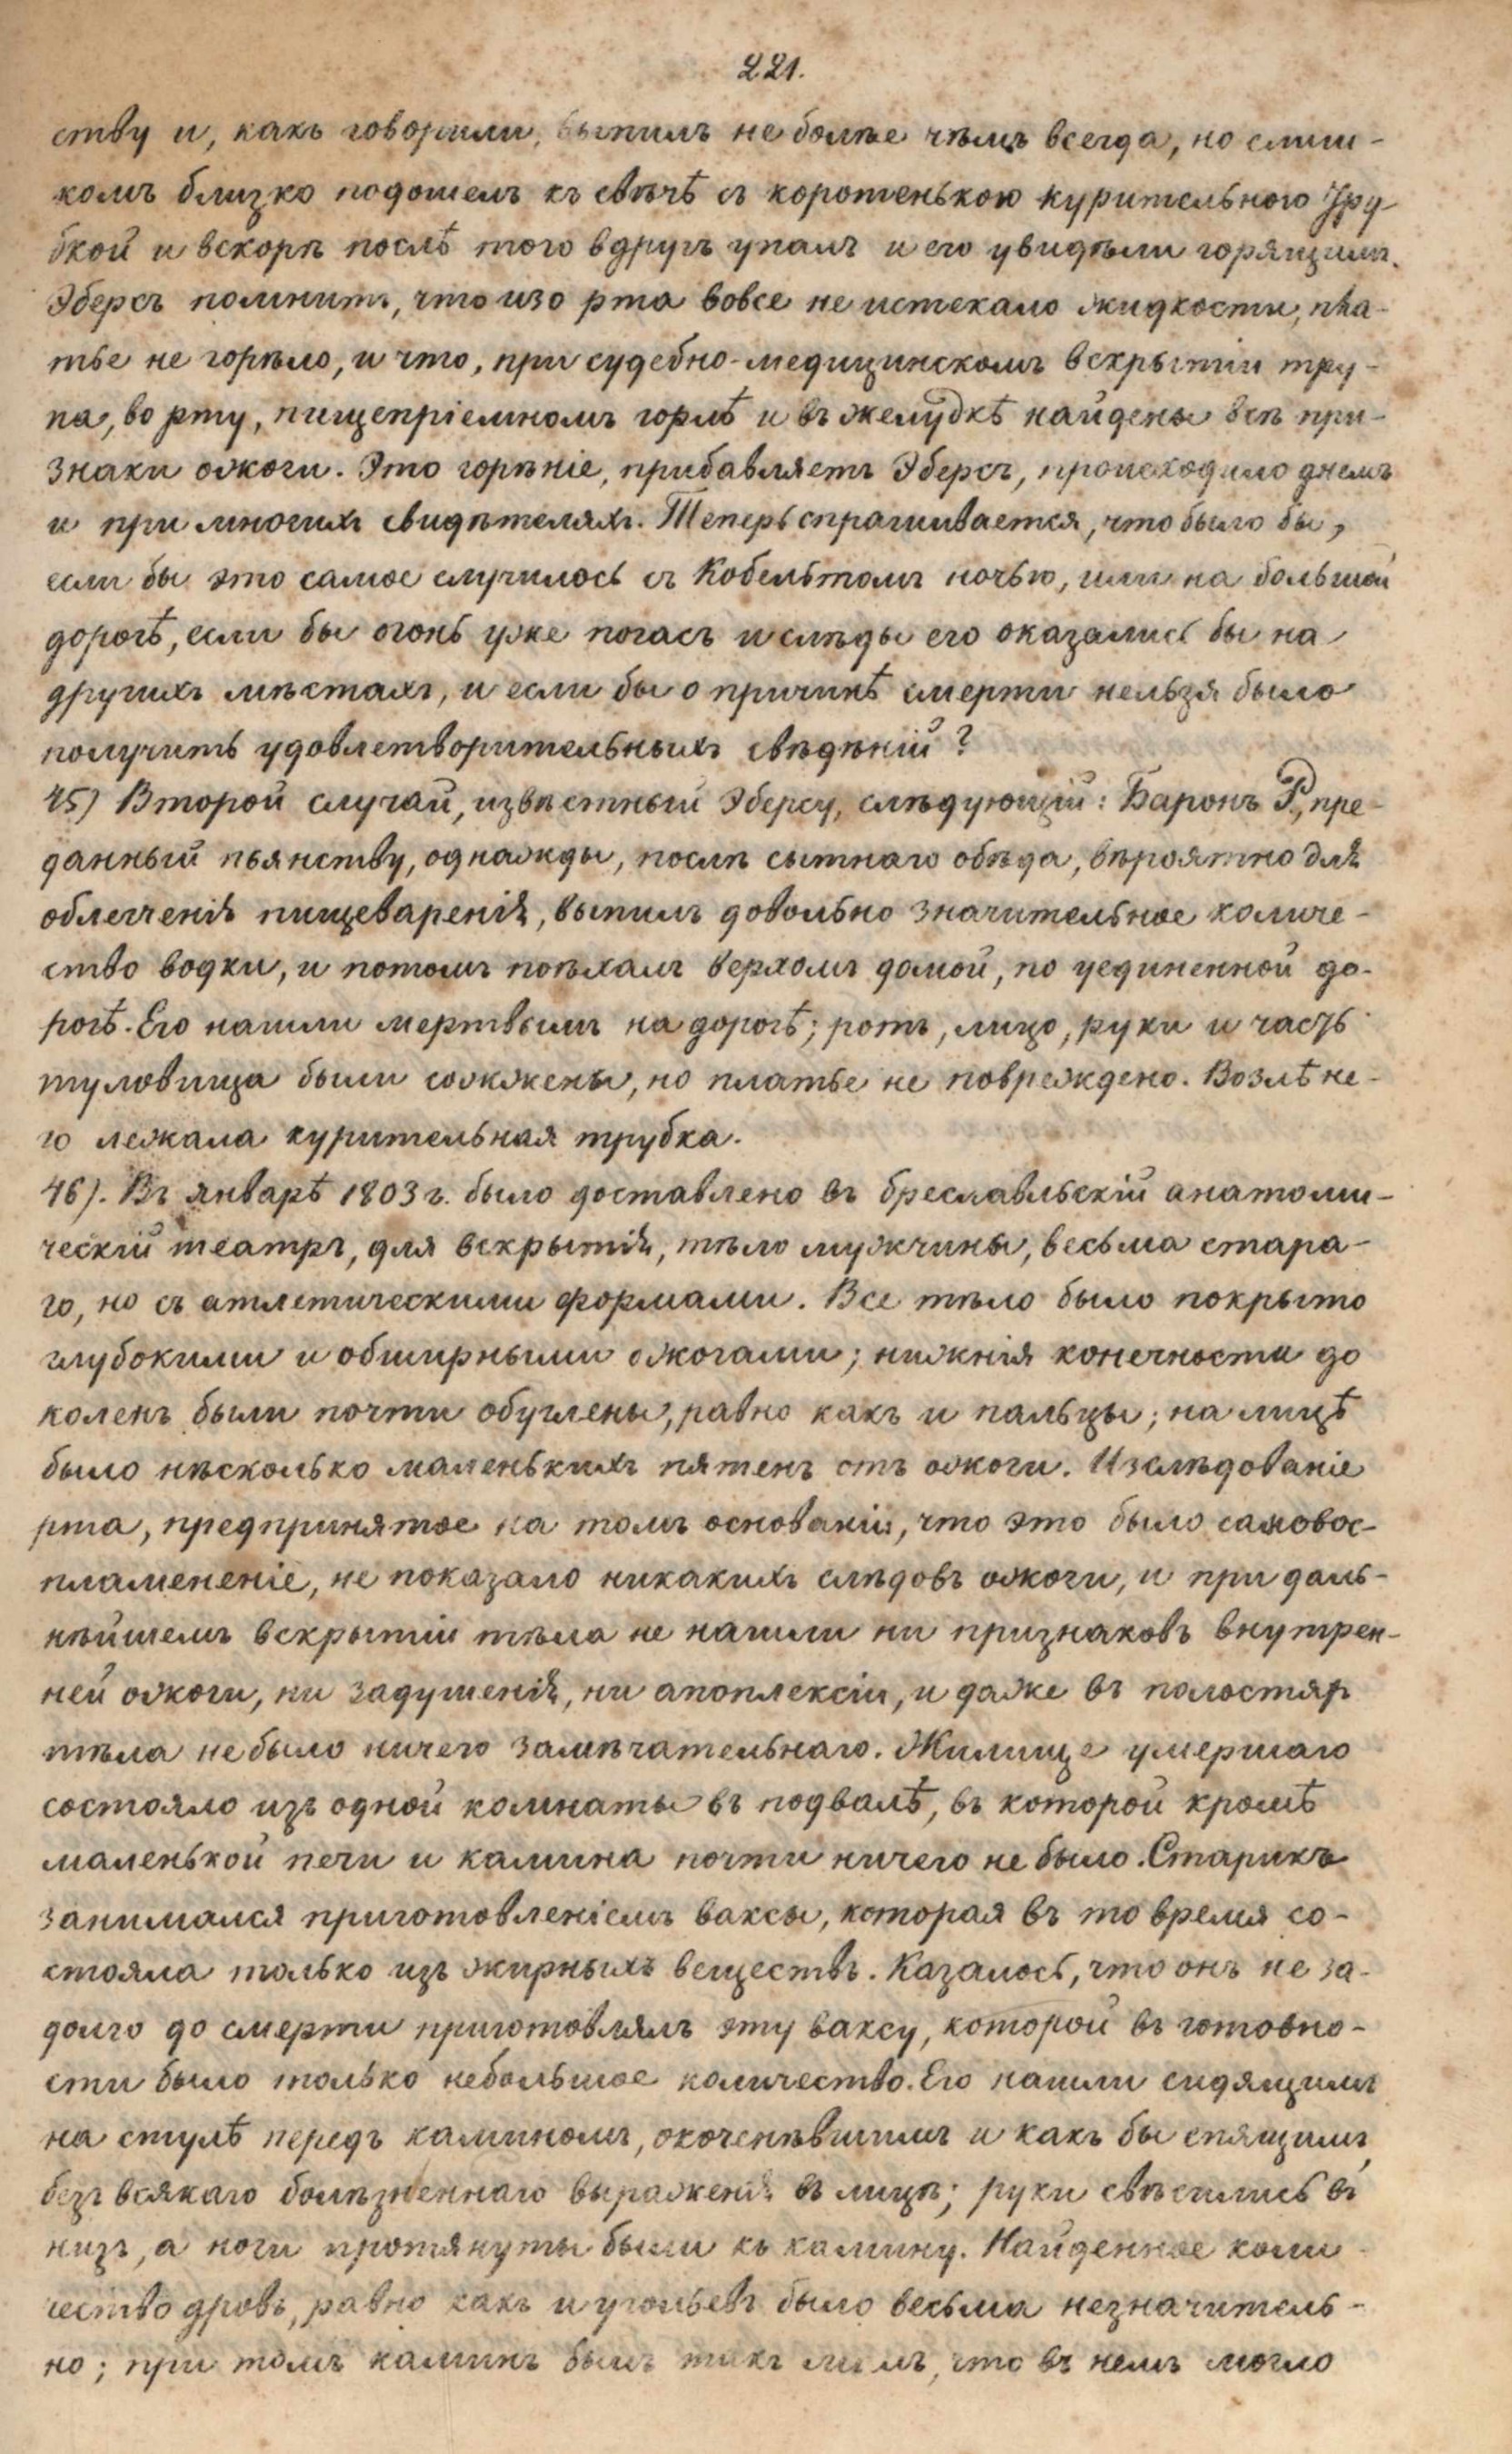 221.
ству и, какъ говорили, выпилъ не болѣе чѣмъ всегда, но слиш-
комъ близко подошелъ къ свѣчѣ съ коротенькою курительною тру
бкой и вскорѣ послѣ того вдругъ упалъ и его увидѣли горящимъ.
Эберсъ помнитъ, что изо рта вовсе не истекало жидкости, пла-
тье не горѣло, и что, при судебно-медицинскомъ вскрытіи тру-
па, во рту, пищепріемномъ горлѣ и въ желудкѣ найдены всѣ при-
знаки ожоги. Это горѣніе, прибавляетъ Эберсъ, происходило днемъ
и при многихъ свидѣтеляхъ. Теперь спрашивается, что было бы,
если бы это самое случилось съ Кобельтомъ ночью, или на большой
дорогѣ, если бы огонь уже погасъ и слѣды его оказались бы на
другихъ мѣстахъ, и если бы о причинѣ смерти нельзя было
получить удовлетворительныхъ свѣдѣній?
45) Второй случай, извѣстный Эберсу, слѣдующій: Баронъ Р., пре-
данный пьянству, однажды, послѣ сытнаго обѣда, вѣроятно для
облегченія пищеваренія, выпилъ довольно значительное количе-
ство водки, и потомъ поѣхалъ верхомъ домой, по уединенной до-
рогѣ. Его нашли мертвымъ на дорогѣ; ротъ, лицо, руки и часть
туловища были сожжены, но платье не повреждено. Возлѣ не-
го лежала курительная трубка.
46). Въ январѣ 1803 г. было доставлено въ бреславльскій анатоми-
ческій театръ, для вскрытія, тѣло мужчины, весьма стара-
го, но съ атлетическими формами. Все тѣло было покрыто
глубокими и обширными ожогами; нижнія конечности до
коленъ были почти обуглены, равно какъ и пальцы; на лицѣ
было нѣсколько маленькихъ пятенъ отъ ожоги. Изслѣдованіе
рта, предпринятое на томъ основаніи, что это было самовос-
пламененіе, не показало никакихъ слѣдовъ ожоги, и при даль-
нѣйшемъ вскрытіи тѣла не нашли ни признаковъ внутрен-
ней ожоги, ни задушенія, ни апоплексіи, и даже въ полостяхъ
тѣла не было ничего замѣчательнаго. Жилище умершаго
состояло изъ одной комнаты въ подвалѣ, въ которой кромѣ
маленькой печи и камина почти ничего не было. Старикъ
занимался приготовленіемъ ваксы, которая въ то время со-
стояла только изъ жирныхъ веществъ. Казалось, что онъ не за-
долго до смерти приготовлялъ эту ваксу, которой въ готовно-
сти было только небольшое количество. Его нашли сидящимъ
на стулѣ передъ каминомъ, окоченѣвшимъ и какъ бы спящимъ,
безъ всякаго болѣзненнаго выраженія въ лицѣ; руки свѣсились въ
низъ, а ноги протянуты были къ камину. Найденное коли
чество дровъ, равно какъ и угольевъ было весьма незначитель-
но; при томъ каминъ былъ такъ малъ, что въ немъ могло